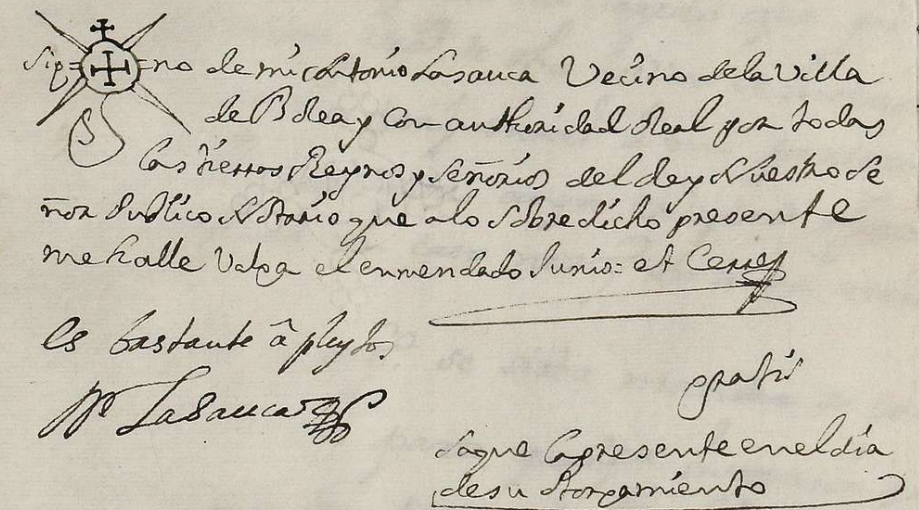 Sig=no de mi Antonio Lasauca Vecino de la Villa
de Bolea y con authoridad Real por todas
las tierras Reynos y señorios del Rey Nuestro Se
ñor Publico Notario que a lo sobredicho presente
me halle Valga el enmendado Junio= et Cerre
es bastante â pleytos
Lasauca
gratis
Saque la presente en el dia
de su otorgamiento